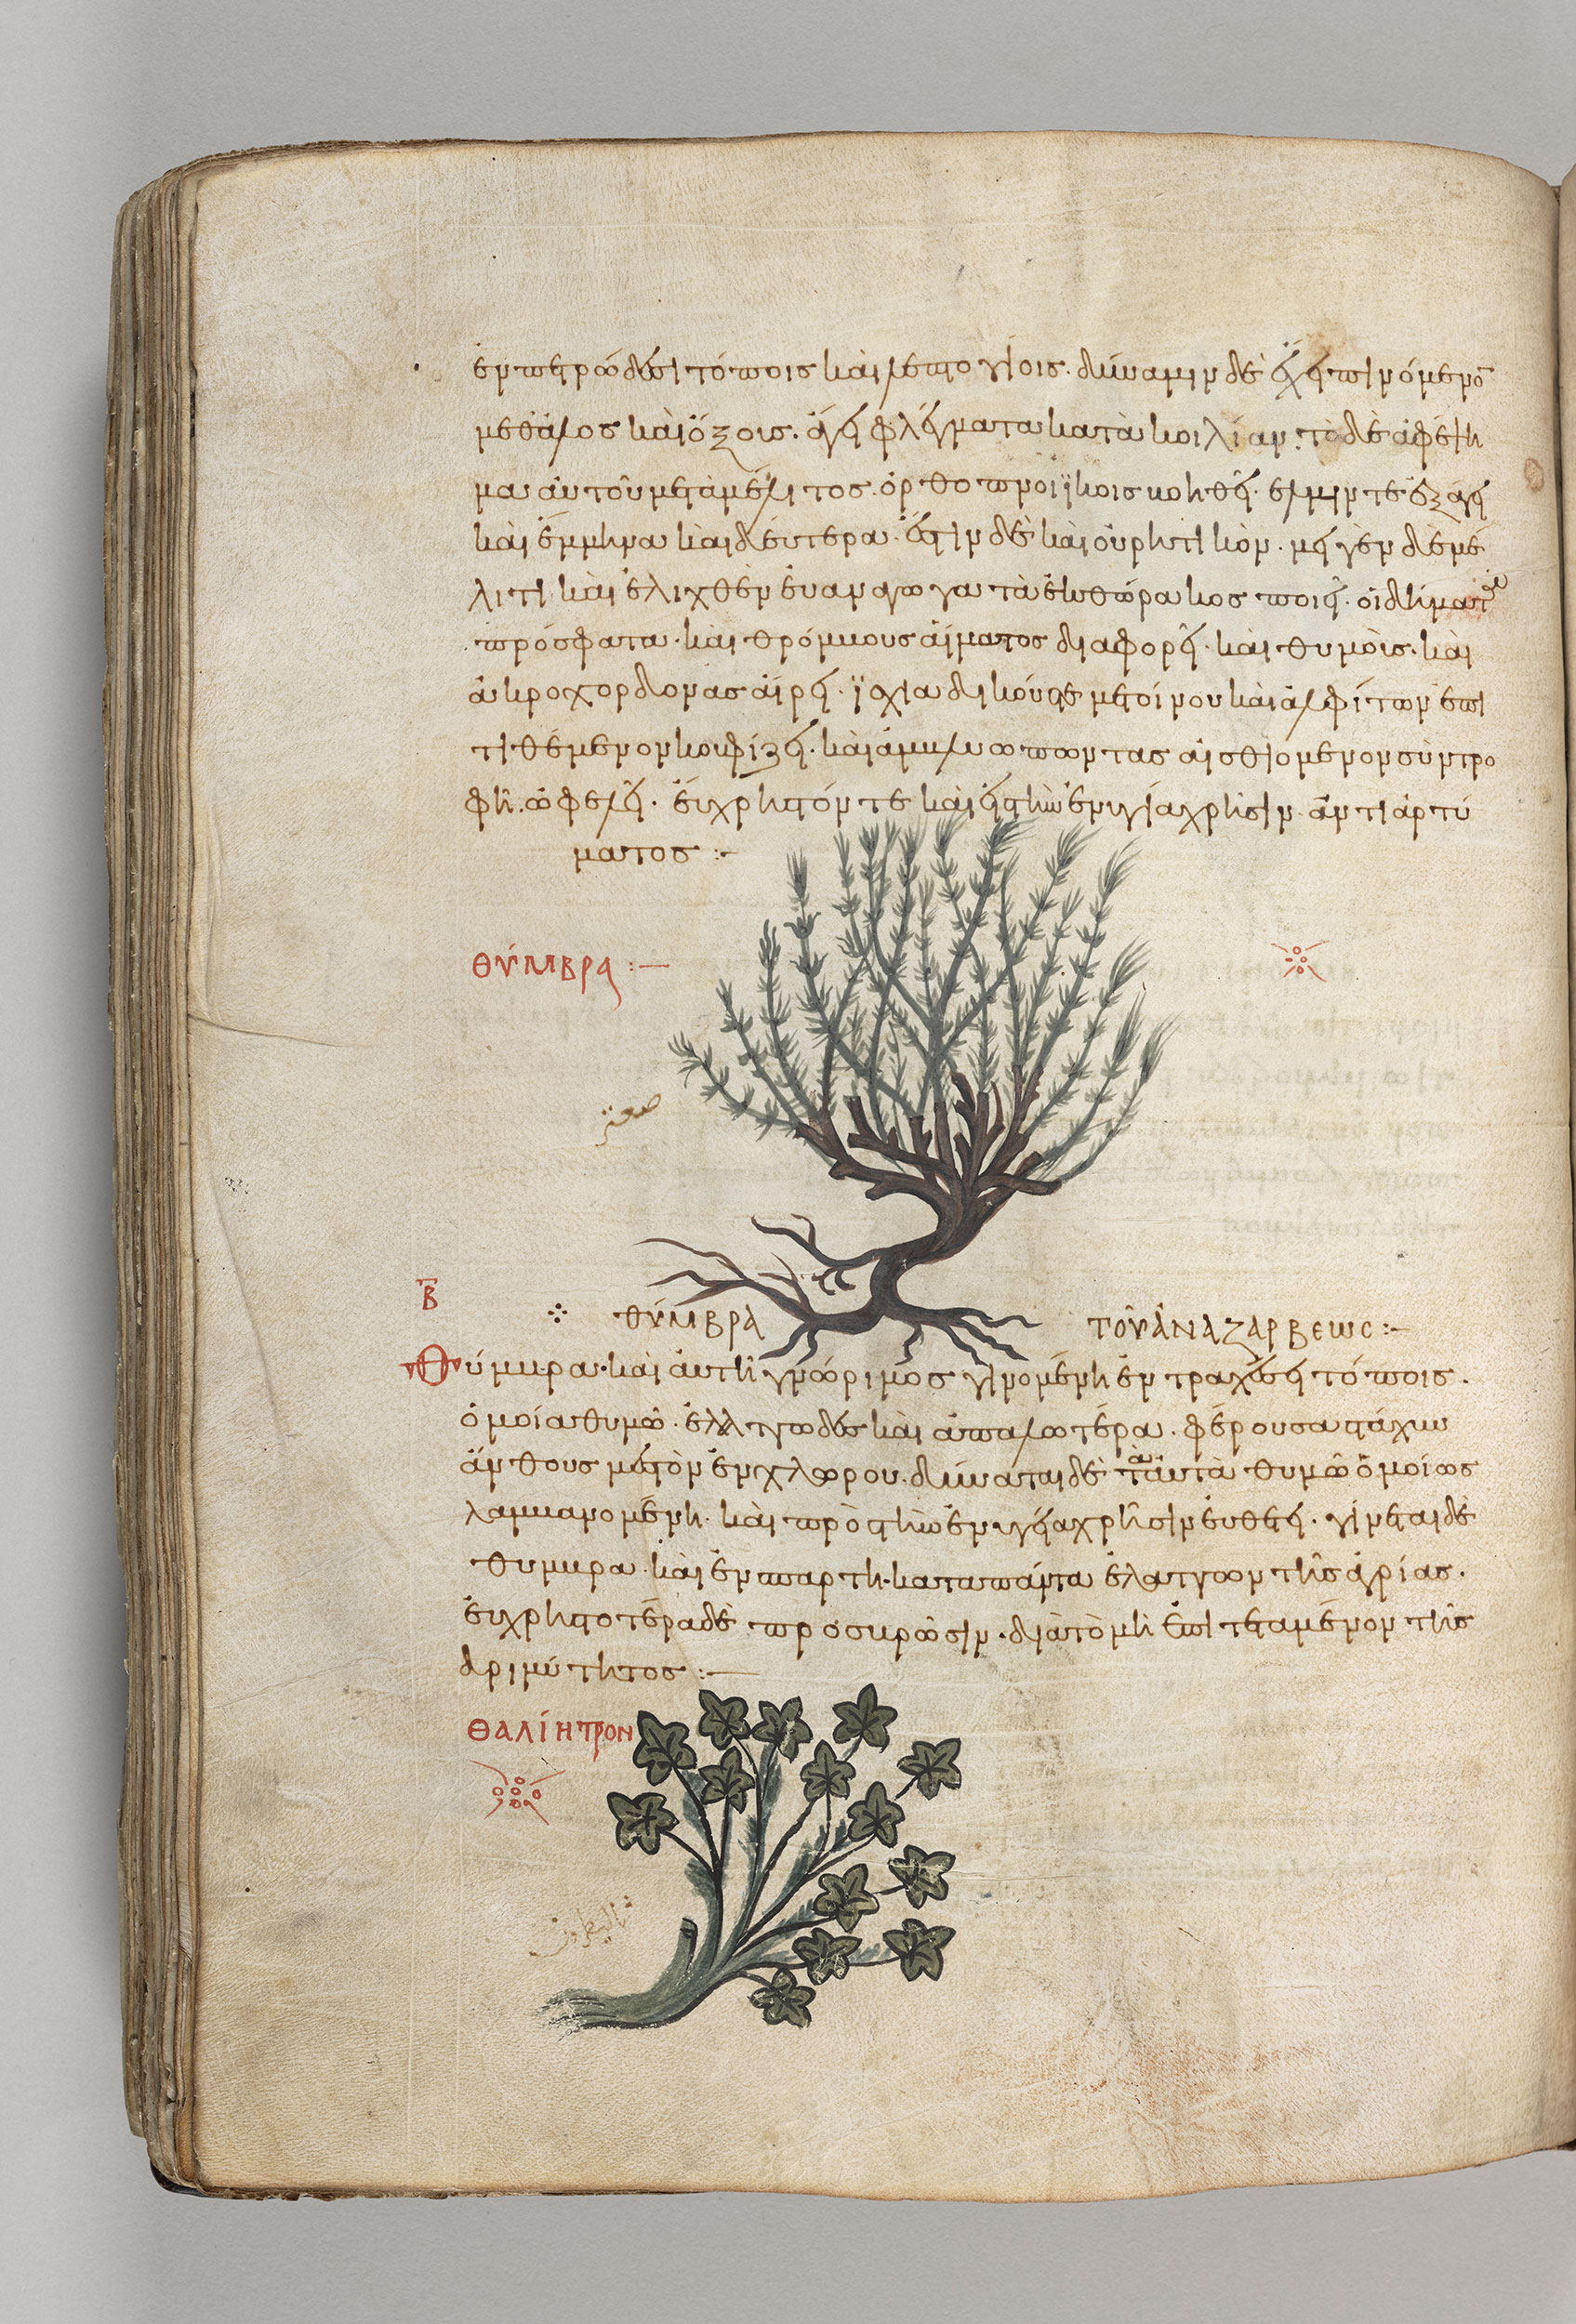 ἐν πετρώδεσι τόποις καὶ λεπτογείοις. δύναμιν δὲ ἔχει πινόμενο
μεθ' ἁλὸς καὶ ὄξους. ἄγει φλέγματα κατὰ κοιλίαν. τὸ δὲ ἀφέψη
μα αὐτοῦ μετὰ μέλιτος. ὀρθοπνοϊκοῖς βοηθεῖ. ἕλμιν τε ἐξάγει
καὶ ἔμμηνα καὶ δεύτερα. ἔστιν δὲ καὶ οὐρητικὸν. μιγὲν δὲ μέ
λιτι καὶ ἐλιχθὲν εὐανάγωγα τὰ ἐκ θώρακος ποιεῖ. οἰδήματα
πρόσφατα. καὶ θρόμβους αἵματος διαφορεῖ. καὶ θυμοὶς. καὶ
ἀκροχορδόνας αἴρει. ἰσχιαδικούς τε μετ' οἴνου καὶ ἀλφίτων ἐπι
τιθέμενον κουφίζει. καὶ ἀμβλυωπώντας αἰσθιόμενον σὺν τρο
φῆ. ὠφελεῖ. εὔχρηστόν τε καὶ εἰς τὴν ἐν ὑγίᾳ χρῆσιν ἀντὶ ἀρτύ
ματος :-
ΘΎΜΒΡΑ :-
صعتر
Β
ΘΎΜΒΡΑ ΤΟῦ ἈΝΑΖΑΡΒΕΩC :-
Θύμβρα. καὶ αὐτὴ γνώριμος γινομένη ἐν τραχέσει τόποις.
ὁμοία θυμῶ. ἐλλαττωδὲς καὶ ἁπαλωτέρα. φέρουσα στάχυν
ἄνθους μεστὸν ἐνχλώρου. δύναται δὲ τὰ αὐτὰ θυμῶ ὁμοίως
λαμβανομένη. καὶ πρὸς τὴν ἐν ὑγείᾳ χρῆσιν εὐθετεῖ. γίνεται δὲ
θύμβρα. καὶ ἐν παρτη. κατὰ πάντα ἔλαττγον τῆς ἀγρίας.
εὐχρηστοτέρα δὲ πρὸς βρῶσιν. διὰ τὸ μὴ ἐπιτεταμένον τῆς
δριμύτητος :-
ΘΑΛΊΗΤΡΟΝ